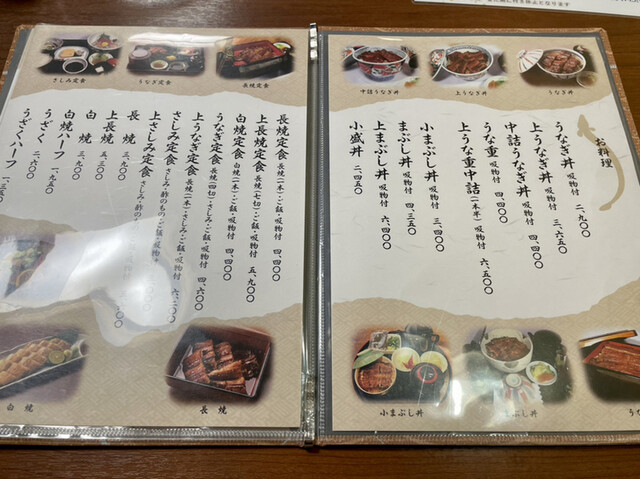 お料理
うなぎ丼 吸物付 二、九〇〇
上うなぎ丼 吸物付 三、六五〇
中詰うなぎ丼 吸物付 四、四〇〇
うな重 吸物付 四、四〇〇
上うな重中詰(一本半) 吸物付 六、五〇〇
小まぶし丼 吸物付 三、四〇〇
まぶし丼 吸物付 四、三五〇
上まぶし丼 吸物付 六、四〇〇
小盛丼 二、四五〇
中詰うなぎ丼
上うなぎ丼
うなぎ丼
小まぶし丼
ぶし丼
うな
さしみ定食
うなぎ定食
長焼定食
長焼定食 長焼(一本)・ご飯・吸物付 四、二〇〇
上長焼定食 長焼(七切)・ご飯・吸物付 五、九〇〇
白焼定食 白焼(一本)・ご飯・吸物付 四、四〇〇
うなぎ定食 長焼(四切)・さしみ・ご飯・吸物付 四、六〇〇
上うなぎ定食 長焼(一本)・さしみ・ご飯・吸物付 六、
さしみ定食 さしみ・酢のもの・ご飯・吸物付
上さしみ定食 さしみ・酢のもの
長焼 三、六〇〇
上長焼 五、三〇〇
白焼 三、九〇〇
白焼ハーフ 一、九五〇
うざく 二、六〇〇
うざくハーフ 一、三五〇
白焼
長焼